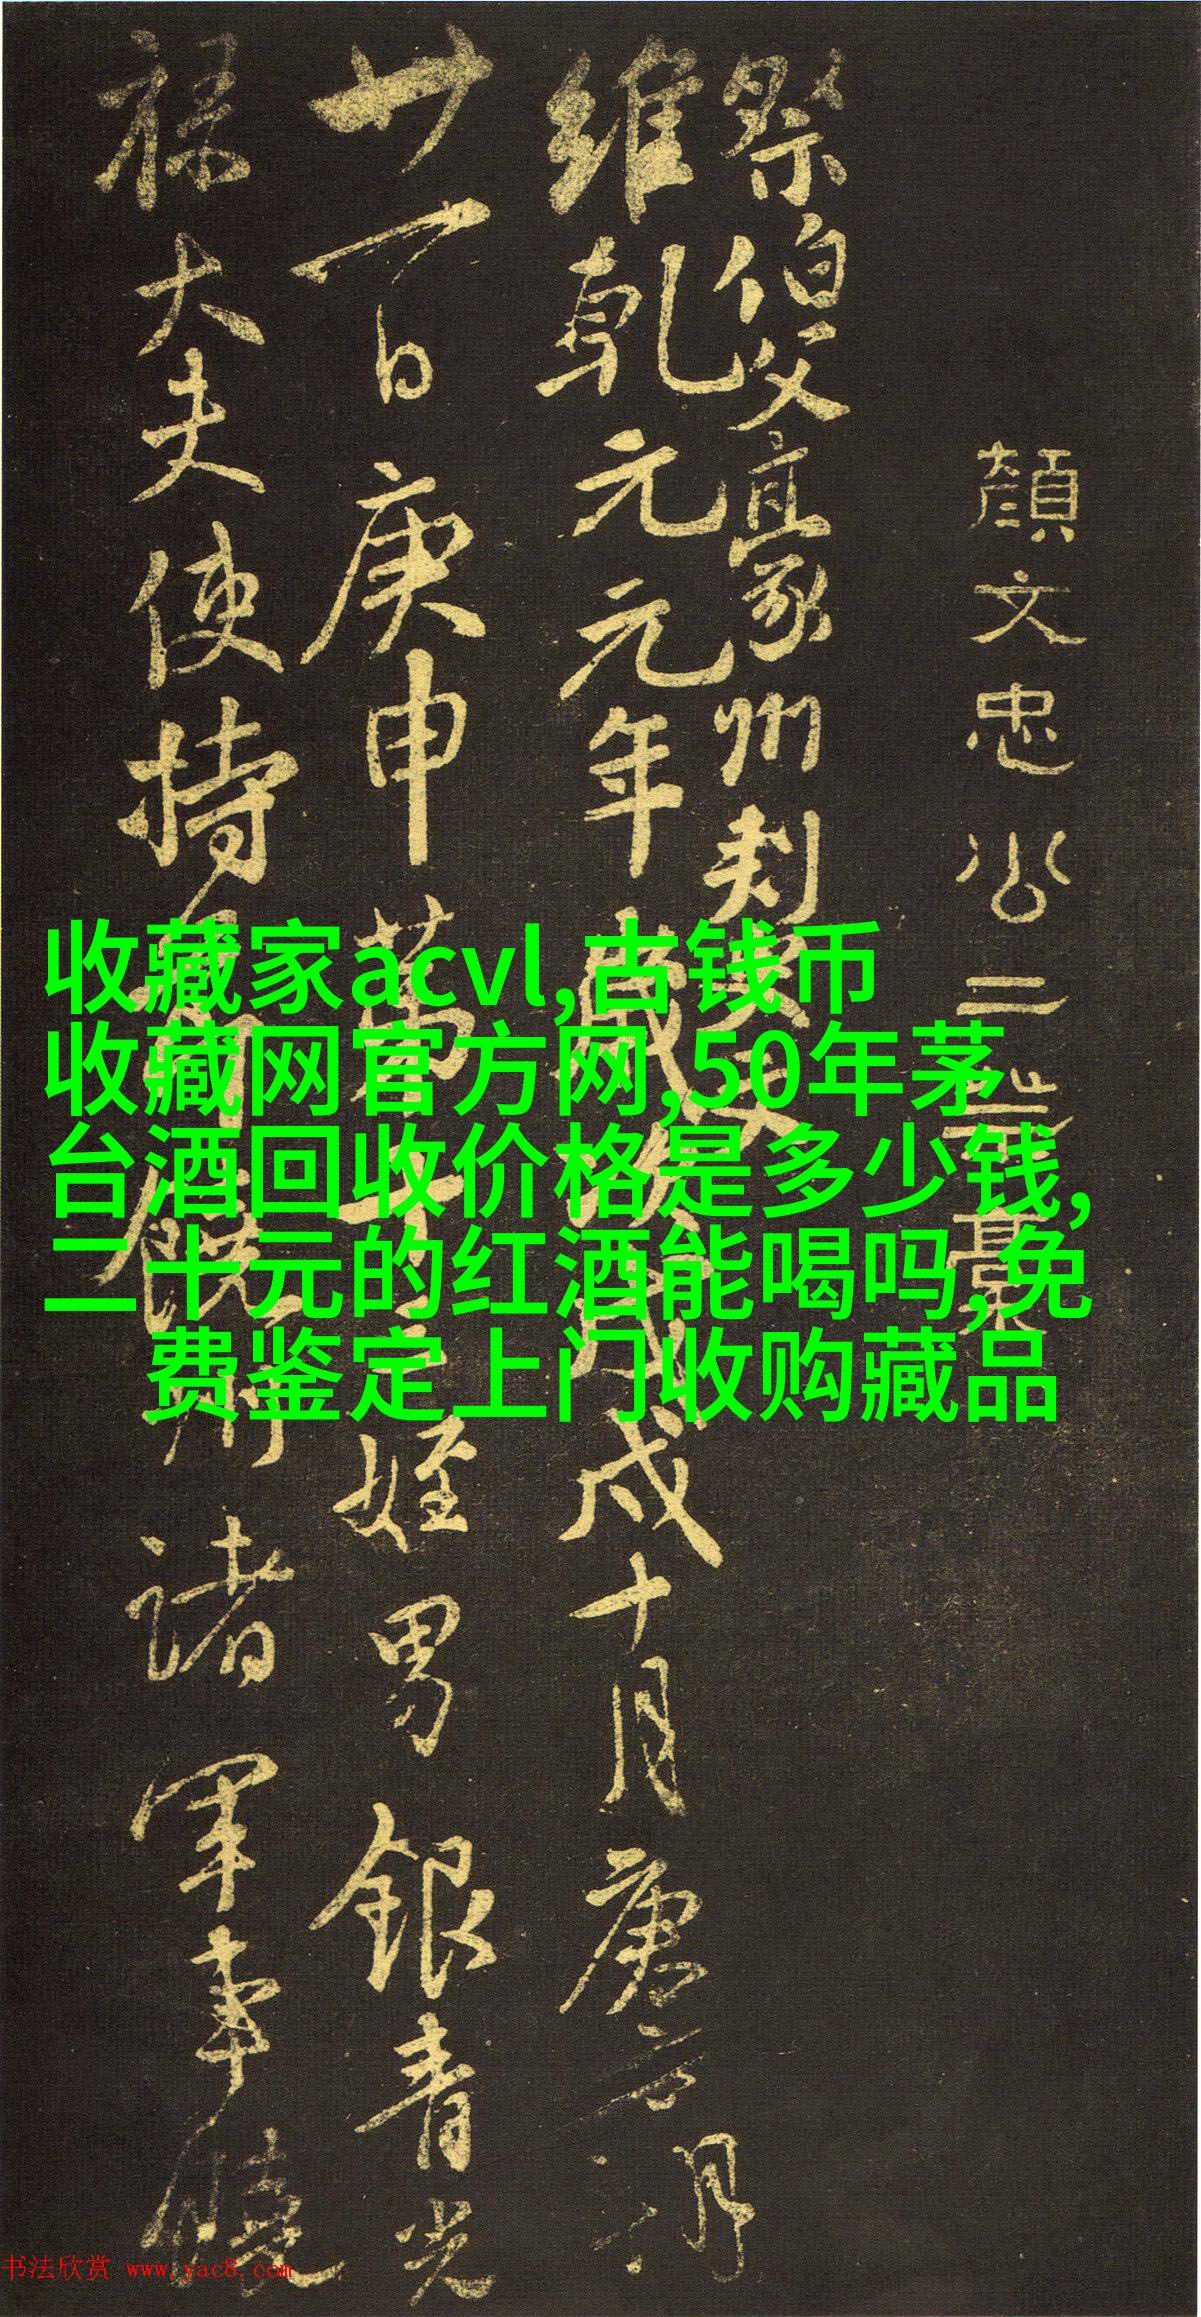 顏文忠公二
祭伯父豪州刺史
維乾元元年歲次戊戌十月庚戌朔
廿一日庚申第十三姪男銀青光
祿大夫使持節饒州諸軍事饒
收藏家acvl,古钱币
收藏网官方网,50年茅
台酒回收价格是多少钱,
二十元的红酒能喝吗,免
费鉴定上门收购藏品
书法欣赏 www.yac8.com